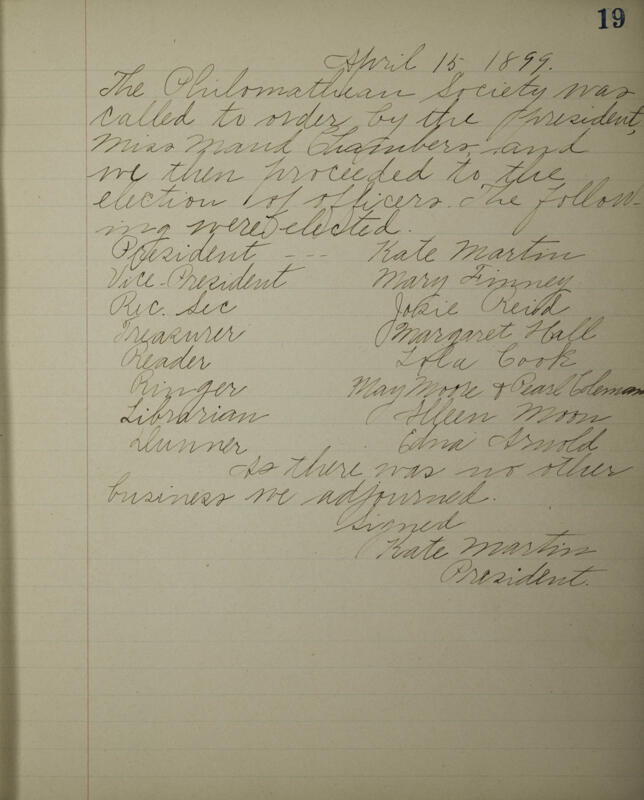 19
April 15 1899.
The Philomathean Society was
called to order by the president,
Miss Maud Chambers, and
we then proceeded to the
election of officers. The follow-
ing were elected.
President --- Kate Martin
Vice-President Mary Finney
Rec. Sec Josie Reid
Treasurer Margaret Hall
Reader Lola Cook
Ringer May Moore & Pearl Coleman
Librarian Illeen Moon
Dunner Edna Arnold
As there was no other
business we adjourned.
Signed
Kate Martin
President.